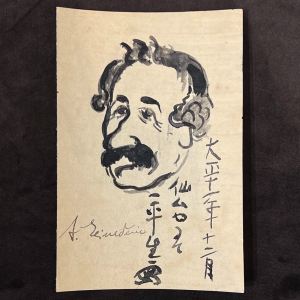 大正十一年十二月
仙台にて
一平生画
A. Einstein